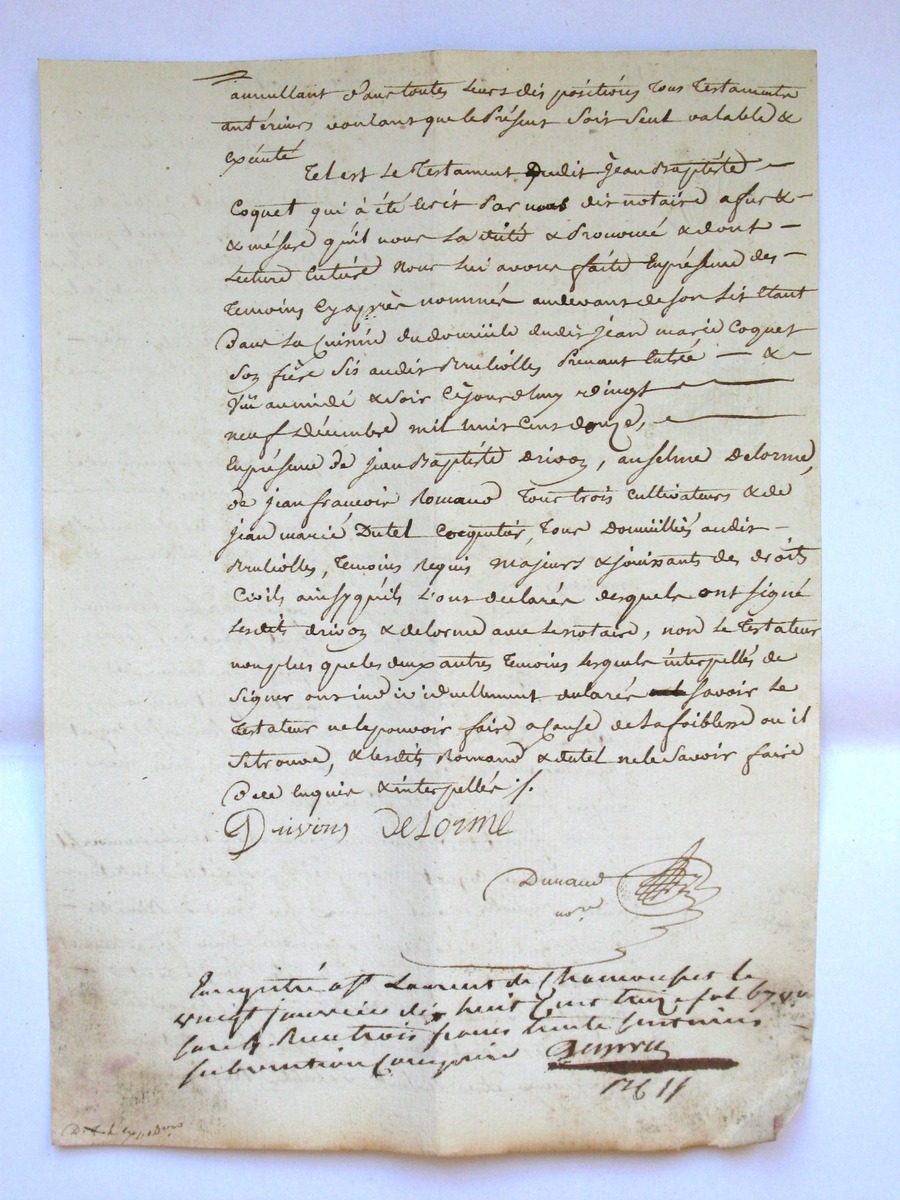 annullant pour toutes leurs dis positions tous Testaments
antérieurs voulant que le Présent Soit Seul valable &
exécuté
Tel est le Testament Dudit Jean Baptiste
Coquet qui à été écrit Par nous dit notaire a fur &
& mésuré qu'il nous la dicté & Prononcé & dont
Lecture entière nous lui avons faite En présence des
Temoins cy après nommés audevant de son lit étant
Dans la Cuisine du domicile dudit Jean marie Coquet
Son frère Sis audit Brulliolles Prenant entrée &
Vüe au midi & Soir Cejourdhuy vingt
neuf Décembre mil huit Cent douze,
En présence de Jean Baptiste Drivon, anselme Delorme,
de Jean francois Romand Tous trois Cultivateurs & de
Jean marié Dutel Coquetier, Tous Domiciliés audit
Brulliolles, Temoins Requis Majeurs & Jouissants des droits
Civils ainsy qu'ils L'ont declarés desquels ont Signé
Lesdits drivon & delorme avec le notaire, non le Testateur
non plus que les deux autres Temoins lesquels interpellés de
Signer ont individuellement declarés Savoir le
Testateur ne le pouvoir faire a cause de la foiblesse ou il
Se trouve, & lesdits Romand & dutel ne le Savoir faire
De ce Enquis & interpellés ./.
Drivons DeLorme
Dunand
nore
Enregistré a St Laurent de Chamousset le
vingt janvier dix huit Cent treize fol 67 vo
Case Recu trois francs trente Centimes
Subvention Comprise